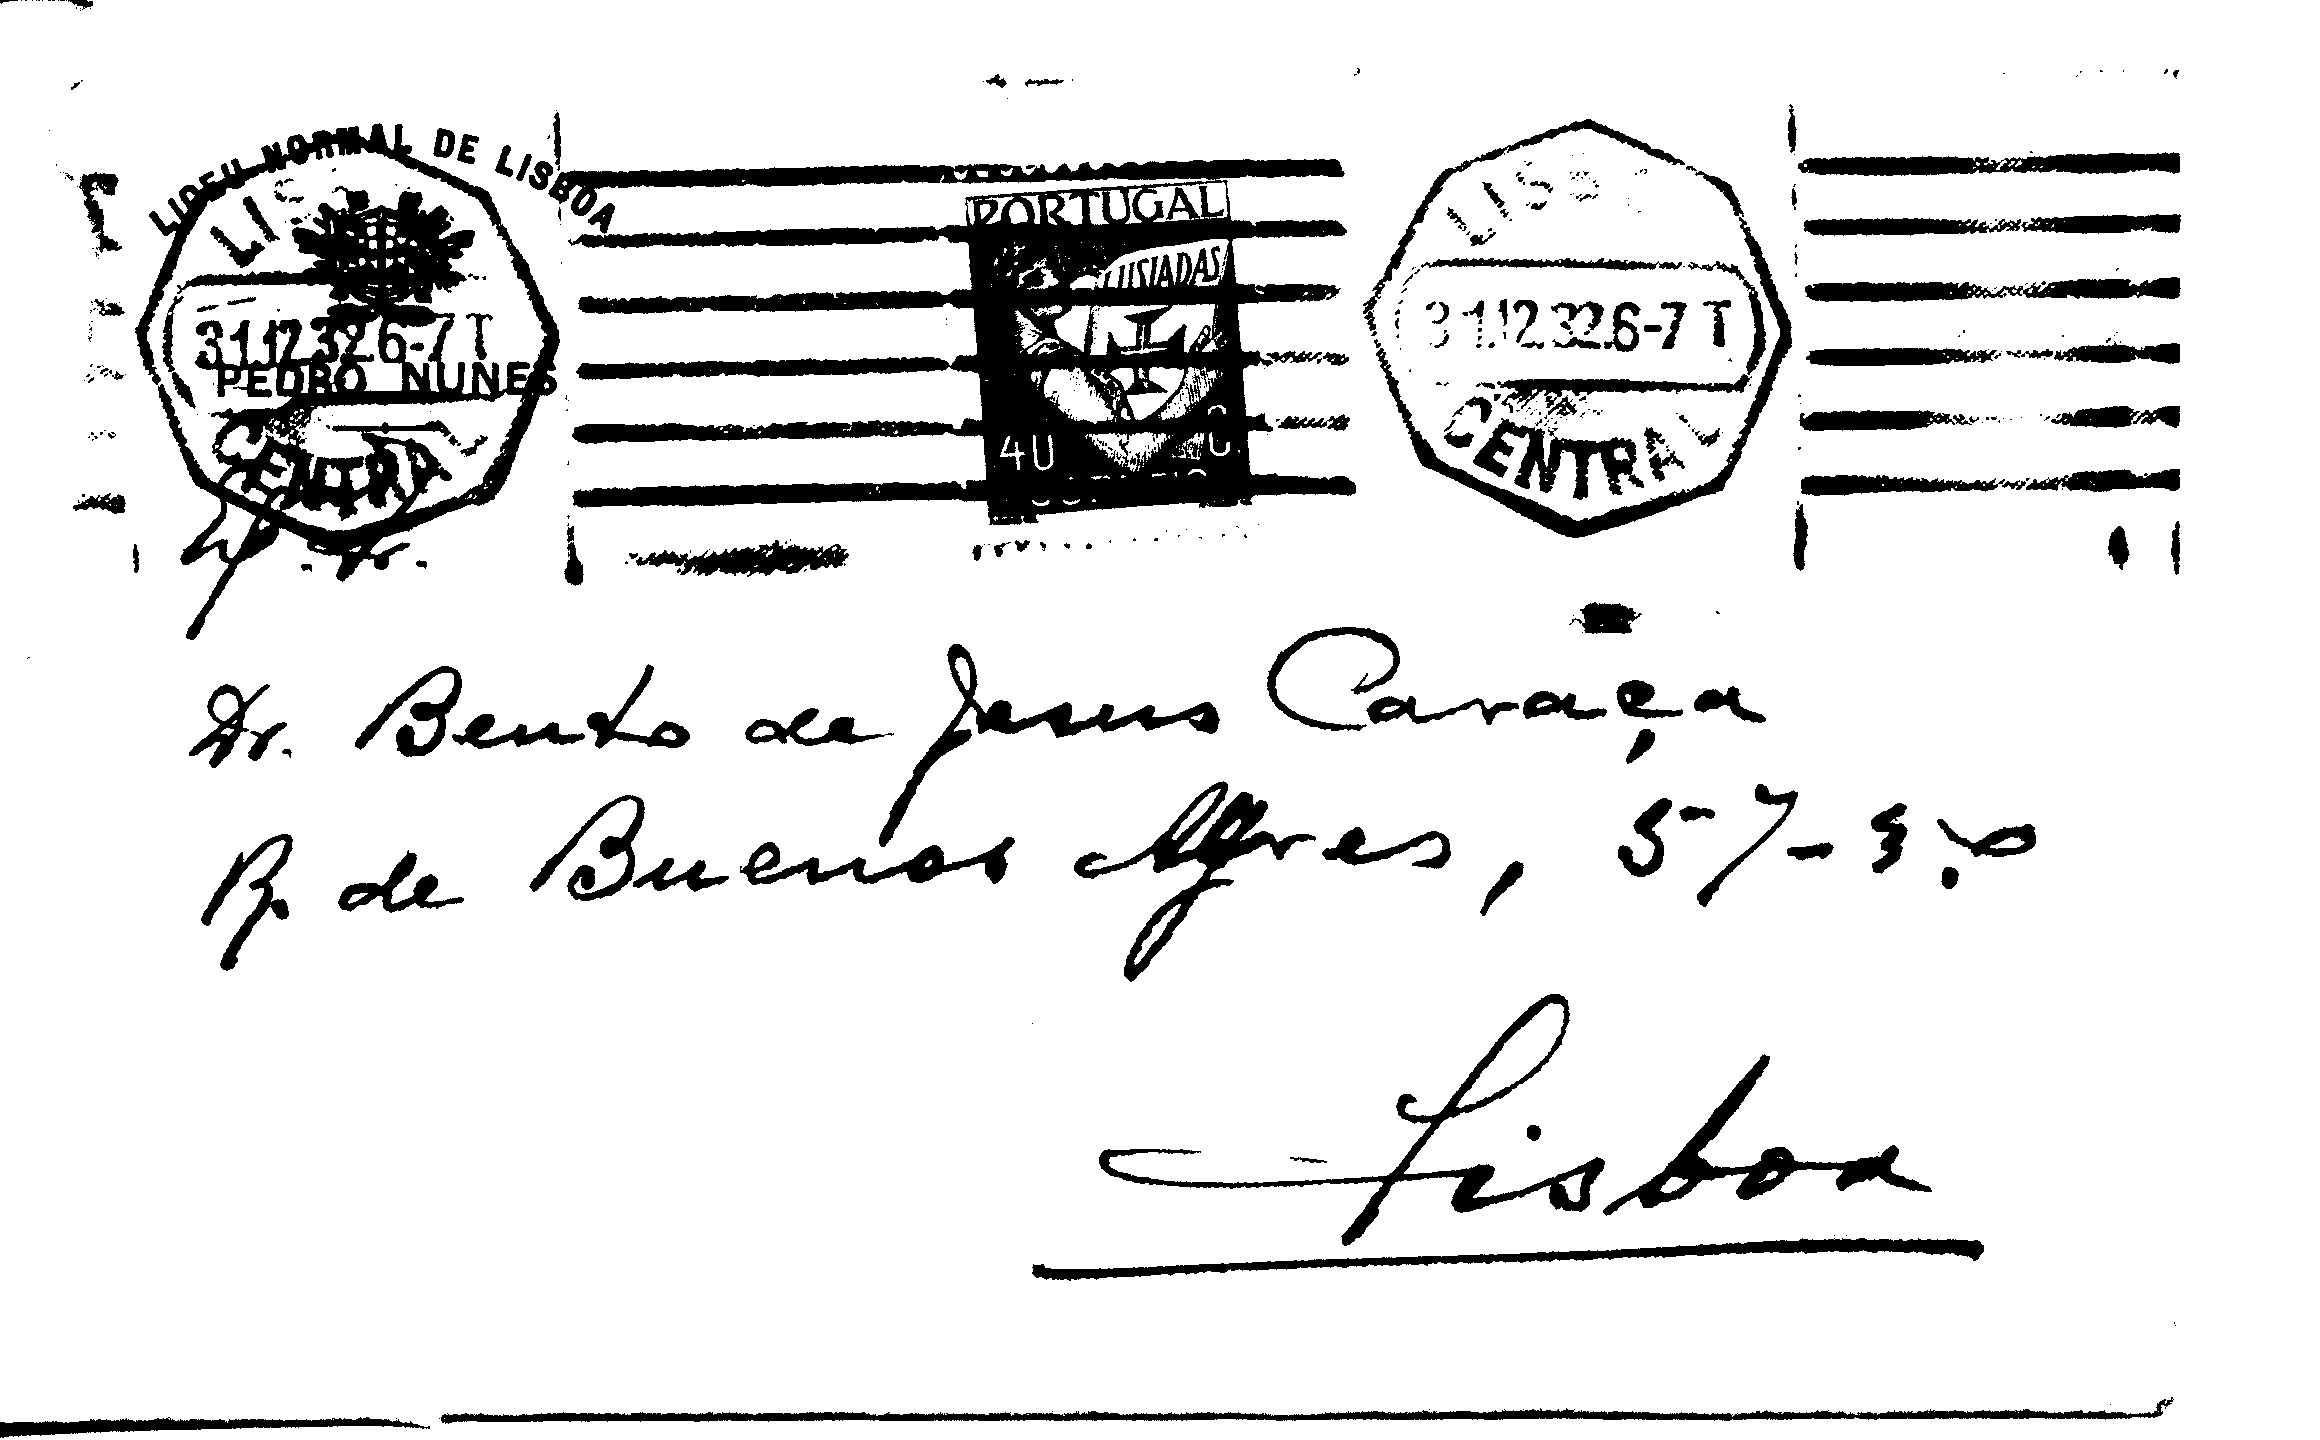 LICEU NORMAL DE LISBOA
PEDRO NUNES
LIS
31.12.32.6-7 T
CENTRAL
PORTUGAL
LUSIADAS
40 C
LISB
31.12.32.6-7 T
CENTRAL
Dr. Bento de Jesus Caraça
R. de Buenos Ayres, 57-3.º
Lisboa